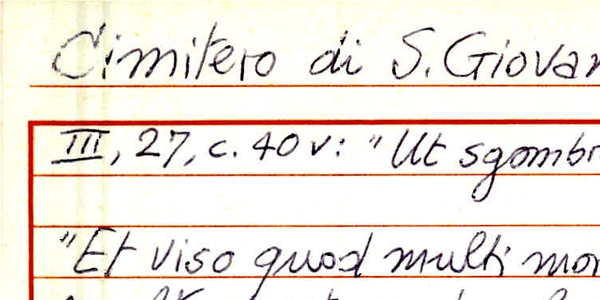 Cimitero di S. Giovan
III, 27, c. 40 v: "Ut sgombr
"Et viso quod multi mor